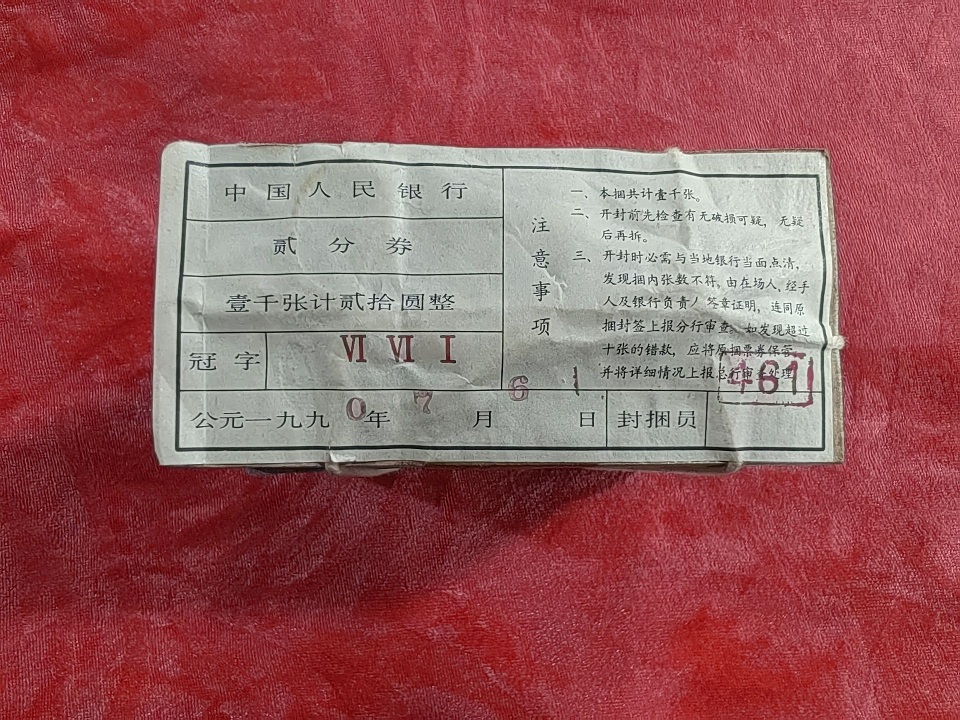 中国人民银行
贰分券
壹千张计贰拾圆整
冠字 VI VI I
公元一九九0年 7月 6 1日 封捆员
461
注意事项
一、本捆共计壹千张。
二、开封前先检查有无破损可疑，无疑
后再拆。
三、开封时必需与当地银行当面点清，
发现捆内张数不符，由在场人、经手
人及银行负责人签章证明，连同原
捆封签上报分行审查。如发现超过
十张的错款，应将原捆票券保管，
并将详细情况上报总行审查处理